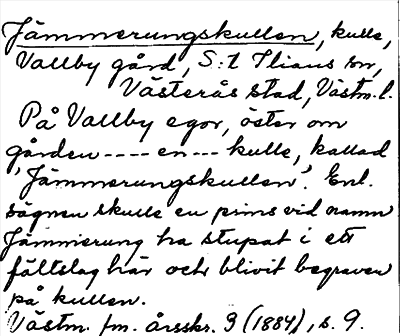 Jämmerungskullen, kulle,
Vallby gård, S:t Ilians sn,
Västerås stad, Västm. l.
På Vallby egor, öster om
gården ---- en --- kulle, kallad
'Jämmerungskullen'. Enl.
sägnen skulle en prins vid namn
Jämmerung ha stupat i ett
fältslag här och blivit begraven
på kullen.
Västm. fm. årsskr. 3 (1884), s. 9.